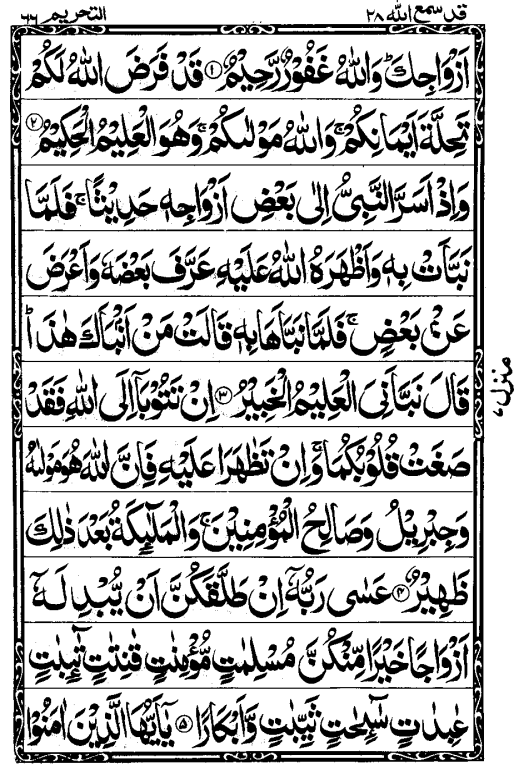 قد سمع الله ٢٨
التحريم ٦٦
اَزۡوَاجِكَ ؕ وَاللّٰهُ غَفُوۡرٌ رَّحِيۡمٌ ﴿۱﴾ قَدۡ فَرَضَ اللّٰهُ لَكُمۡ
تَحِلَّةَ اَيۡمَانِكُمۡ ۚ وَاللّٰهُ مَوۡلٰٮكُمۡ ۚ وَهُوَ الۡعَلِيۡمُ الۡحَكِيۡمُ ﴿۲﴾
وَاِذۡ اَسَرَّ النَّبِىُّ اِلٰى بَعۡضِ اَزۡوَاجِهٖ حَدِيۡثًا ۚ فَلَمَّا
نَبَّاَتۡ بِهٖ وَاَظۡهَرَهُ اللّٰهُ عَلَيۡهِ عَرَّفَ بَعۡضَهٗ وَاَعۡرَضَ
عَنۡۢ بَعۡضٍ ۚ فَلَمَّا نَبَّاَهَا بِهٖ قَالَتۡ مَنۡ اَنۡۢبَاَكَ هٰذَا ؕ
قَالَ نَبَّاَنِىَ الۡعَلِيۡمُ الۡخَبِيۡرُ ﴿۳﴾ اِنۡ تَتُوۡبَاۤ اِلَى اللّٰهِ فَقَدۡ
صَغَتۡ قُلُوۡبُكُمَا ۚ وَاِنۡ تَظٰهَرَا عَلَيۡهِ فَاِنَّ اللّٰهَ هُوَ مَوۡلٰٮهُ
وَجِبۡرِيۡلُ وَصَالِحُ الۡمُؤۡمِنِيۡنَ ۚ وَالۡمَلٰٓٮِٕكَةُ بَعۡدَ ذٰلِكَ
ظَهِيۡرٌ ﴿۴﴾ عَسٰى رَبُّهٗۤ اِنۡ طَلَّقَكُنَّ اَنۡ يُّبۡدِلَهٗۤ
اَزۡوَاجًا خَيۡرًا مِّنۡكُنَّ مُسۡلِمٰتٍ مُّؤۡمِنٰتٍ قٰنِتٰتٍ تٰٓٮِٕبٰتٍ
عٰبِدٰتٍ سٰٓٮِٕحٰتٍ ثَيِّبٰتٍ وَّاَبۡكَارًا ﴿۵﴾ يٰۤاَيُّهَا الَّذِيۡنَ اٰمَنُوۡا
منزل ۷